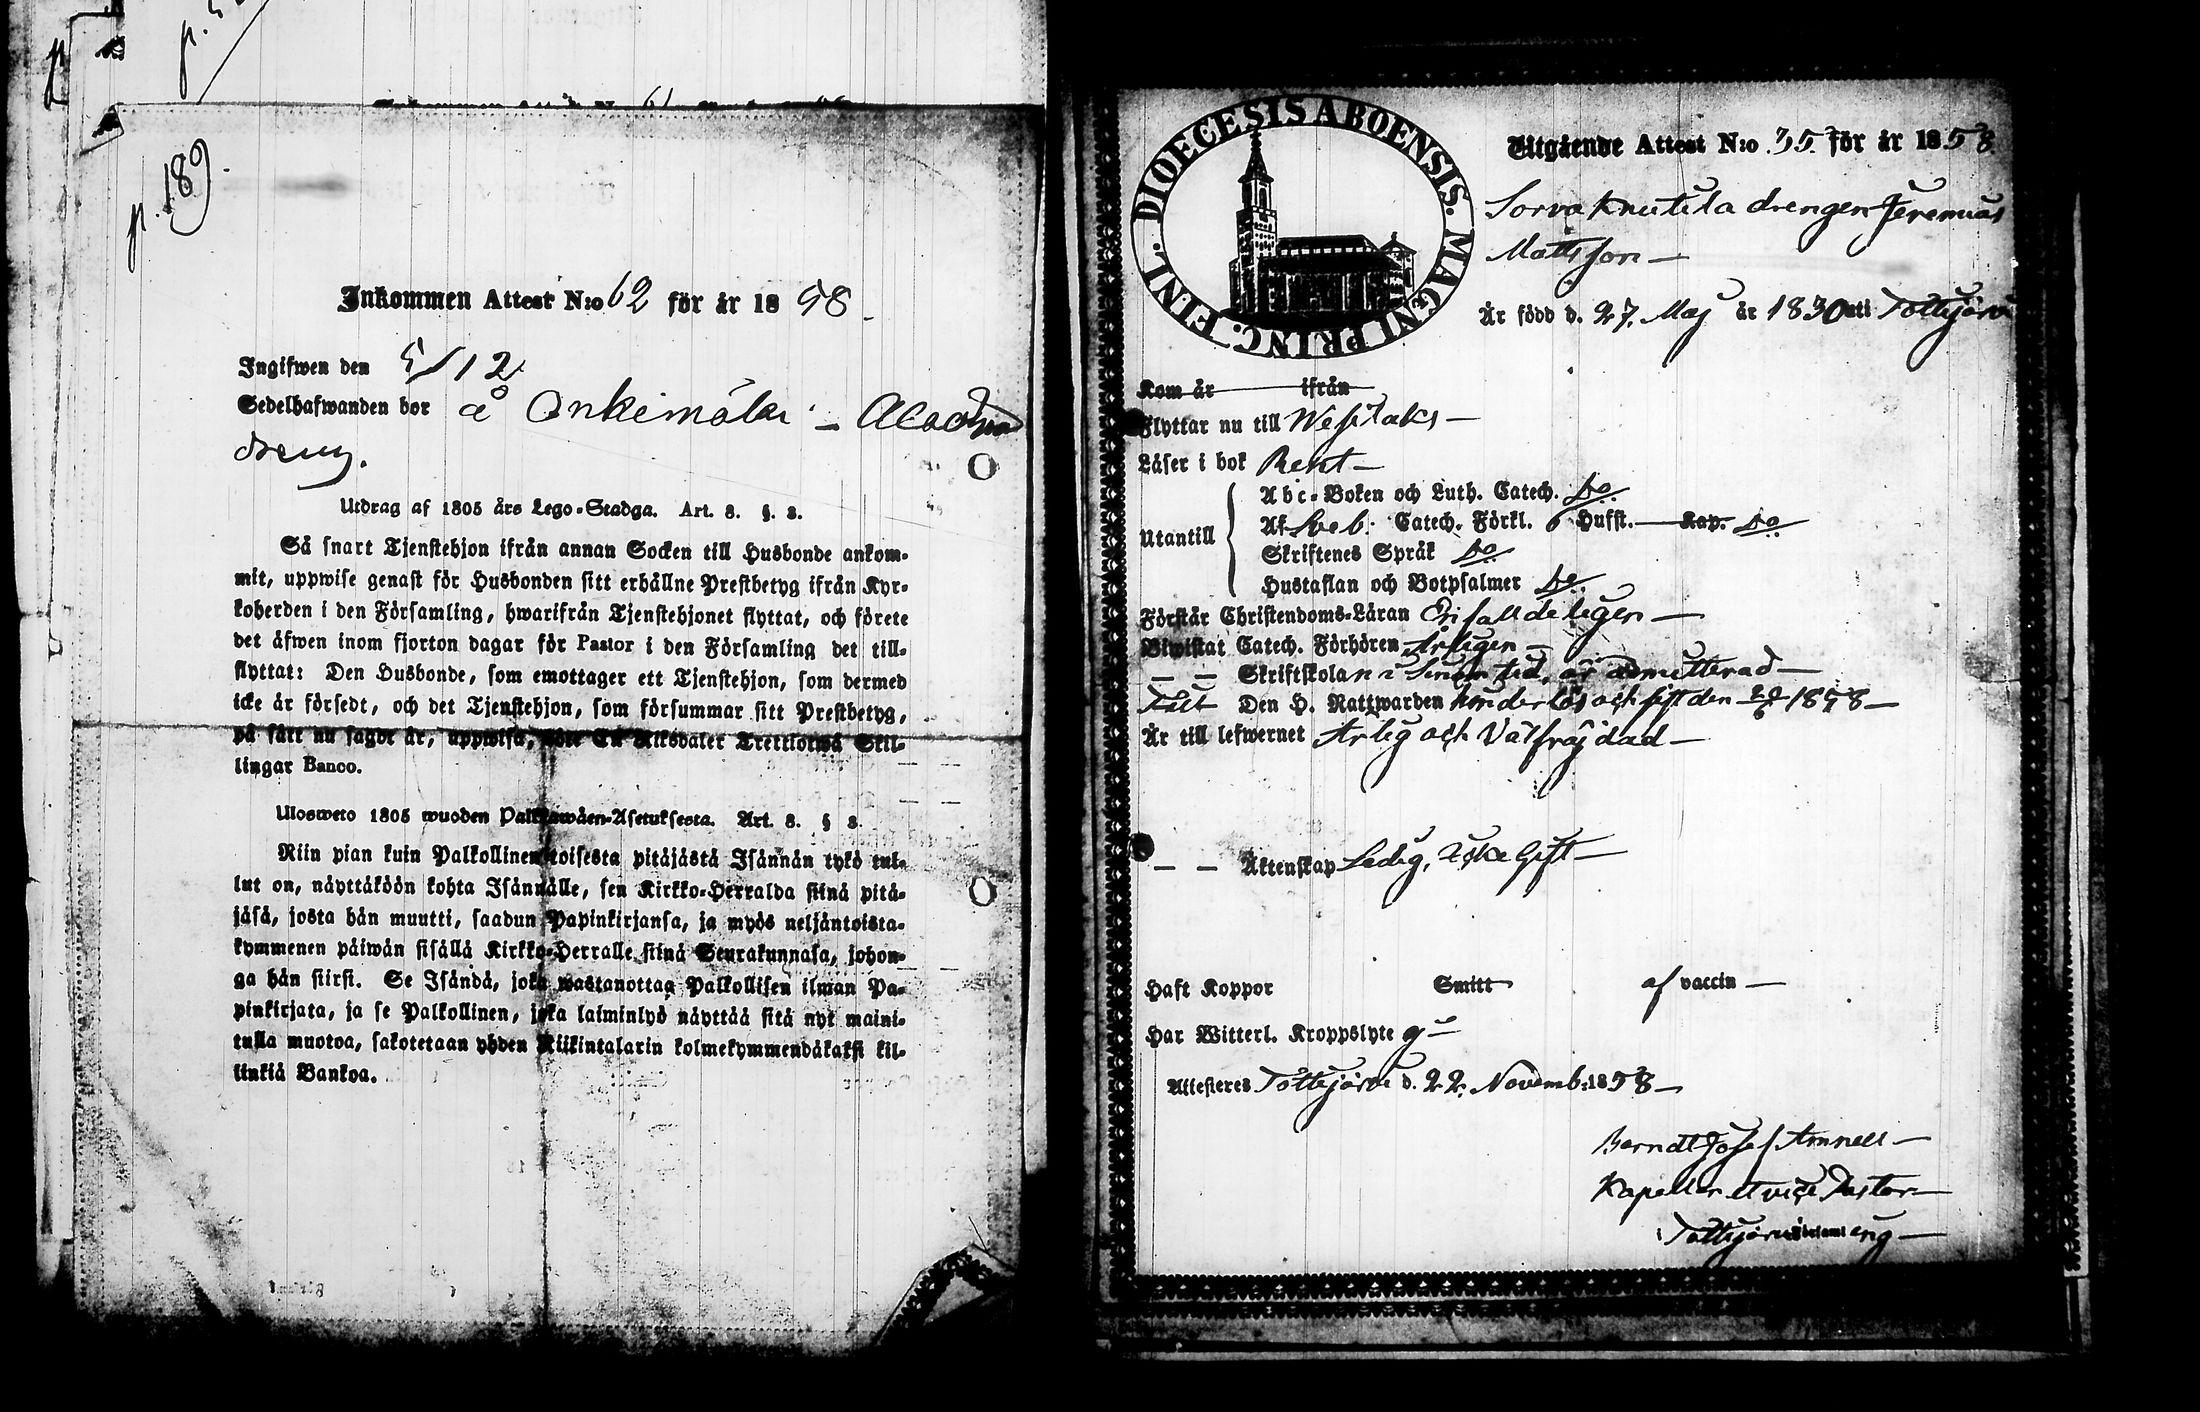 p. 189.
Inkommen Attest N:o 62 för år 1858.
Ingifwen den 5/12
Sedelhafwanden bor å Onkimäki –
dreng.
Utdrag af 1805 års Lego-Stadga. Art. 8. §. 8.
Så snart Tjenstehjon ifrån annan Socken till Husbonde ankom-
mit, uppwise genast för Husbonden sitt erhållne Prestbetyg ifrån Kyr-
koherden i den Församling, hwarifrån Tjenstehjonet flyttat, och förete
det äfwen inom fjorton dagar för Pastor i den Församling det till-
flyttat: Den Husbonde, som emottager ett Tjenstehjon, som dermed
icke är försedt, och det Tjenstehjon, som försummar sitt Prestbetyg,
på sätt nu sagdt är, uppwisa, böte En Riksdaler Trettiotwå Skil-
lingar Banco.
Ulosweto 1805 wuoden Palkkawäen-Asetuksesta. Art. 8. § 8.
Niin pian kuin Palkollinen toisesta pitäjästä Isännän tykö tul-
lut on, näyttäköön kohta Isännälle, sen Kirkko-Herralda siinä pitä-
jäsä, josta hän muutti, saadun Papinkirjansa, ja myös neljäntoista-
kymmenen päiwän sisällä Kirkko-Herralle siinä Seurakunnasa, johon-
ga hän siirsi. Se Isändä, joka wastanottaa Palkollisen ilman Pa-
pinkirjata, ja se Palkollinen, joka laiminlyö näyttää sitä nyt maini-
tulla muotoa, sakotetaan yhden Riikintalarin kolmekymmendäkaksi kil-
linkiä Bankoa.
FINL. DIOECESIS ABOENSIS. MAGNI PRINC.
Utgående Attest N:o 35. för år 1858.
Sorva Knutila drengen Jeremias
Mattsson —
Är född d. 27. Maj år 1830 uti Tottijärvi
Kom år ifrån
Flyttar nu till Wesilaks —
Läser i bok Rent —
Utantill
Abc-Boken och Luth. Catech. do
Af Sveb. Catech. Förkl. 6 Hufst. Kap. do
Skriftenes Språk do
Hustaflan och Botpsalmer do
Förstår Christendoms-Läran Enfalldeligen —
Biwistat Catech. Förhören Årligen —
— — Skriftskolan i sinom tid, är admitterad —
Den H. Nattwarden och sist den 20/6 1858 —
Är till lefwernet Ärlig och Välfräjdad —
— — Äktenskap Ledig, Icke Gift —
Haft Koppor Smitt af vaccin —
Har Witterl. Kroppslyte ej —
Attesteres Tottijärvi d. 22. Novemb: 1858 —
Berndt Josef Amnell —
Kapellan et vice Pastor —
i Tottijärvi Församling —